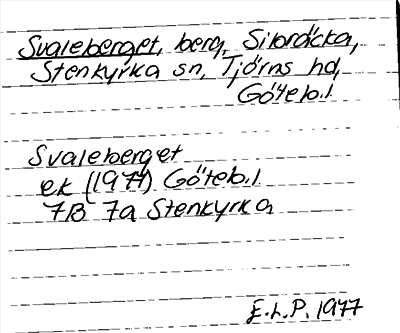 Svaleberget, berg, Sibräcka,
Stenkyrka sn, Tjörns hd,
Göteb.l
Svaleberget
ek (1977) Göteb.l
7B 7a Stenkyrka
E.L.P. 1977